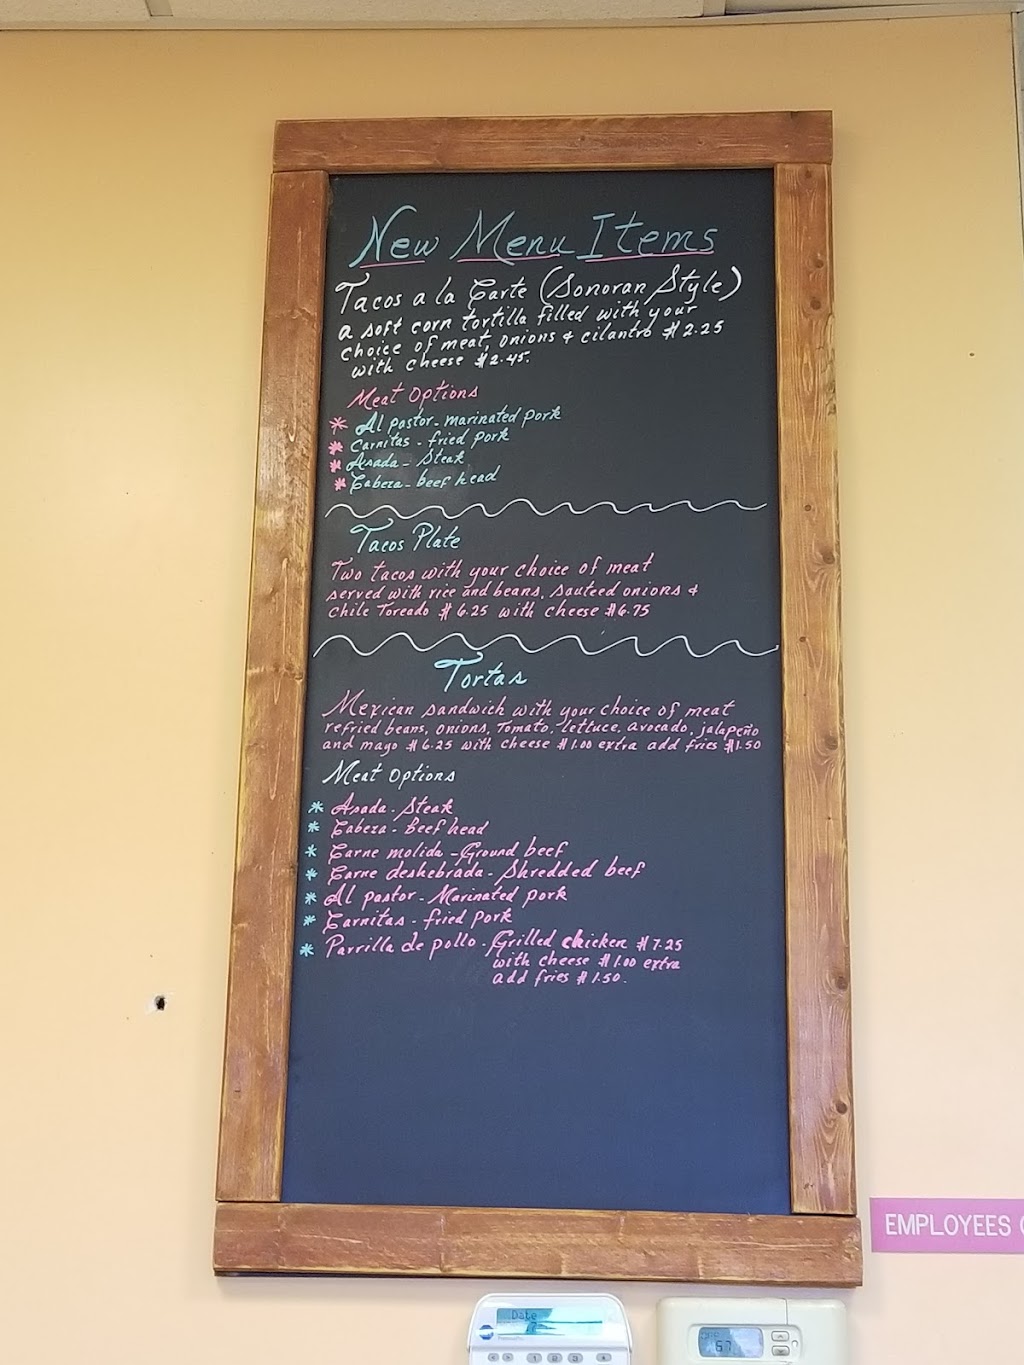 New Menu Items
Tacos a la Carte (Sonoran Style)
a soft corn tortilla filled with your
choice of meat, onions & cilantro $2.25
with cheese $2.45.
Meat Options
* Al pastor - marinated pork
* Carnitas - fried pork
* Asada - Steak
* Cabeza - beef head
Tacos Plate
Two tacos with your choice of meat
served with rice and beans, sauteed onions &
chile Toreado $6.25 with cheese $6.75
Tortas
Mexican sandwich with your choice of meat
refried beans, onions, Tomato, lettuce, avocado, jalapeño
and mayo $6.25 with cheese $1.00 extra add fries $1.50
Meat Options
* Asada - Steak
* Cabeza - Beef head
* Carne molida - Ground beef
* Carne deshebrada - Shredded beef
* Al pastor - Marinated pork
* Carnitas - fried pork
* Parrilla de pollo - Grilled chicken $7.25
with cheese $1.00 extra
add fries $1.50.
EMPLOYEES
Date
67
1 2 3